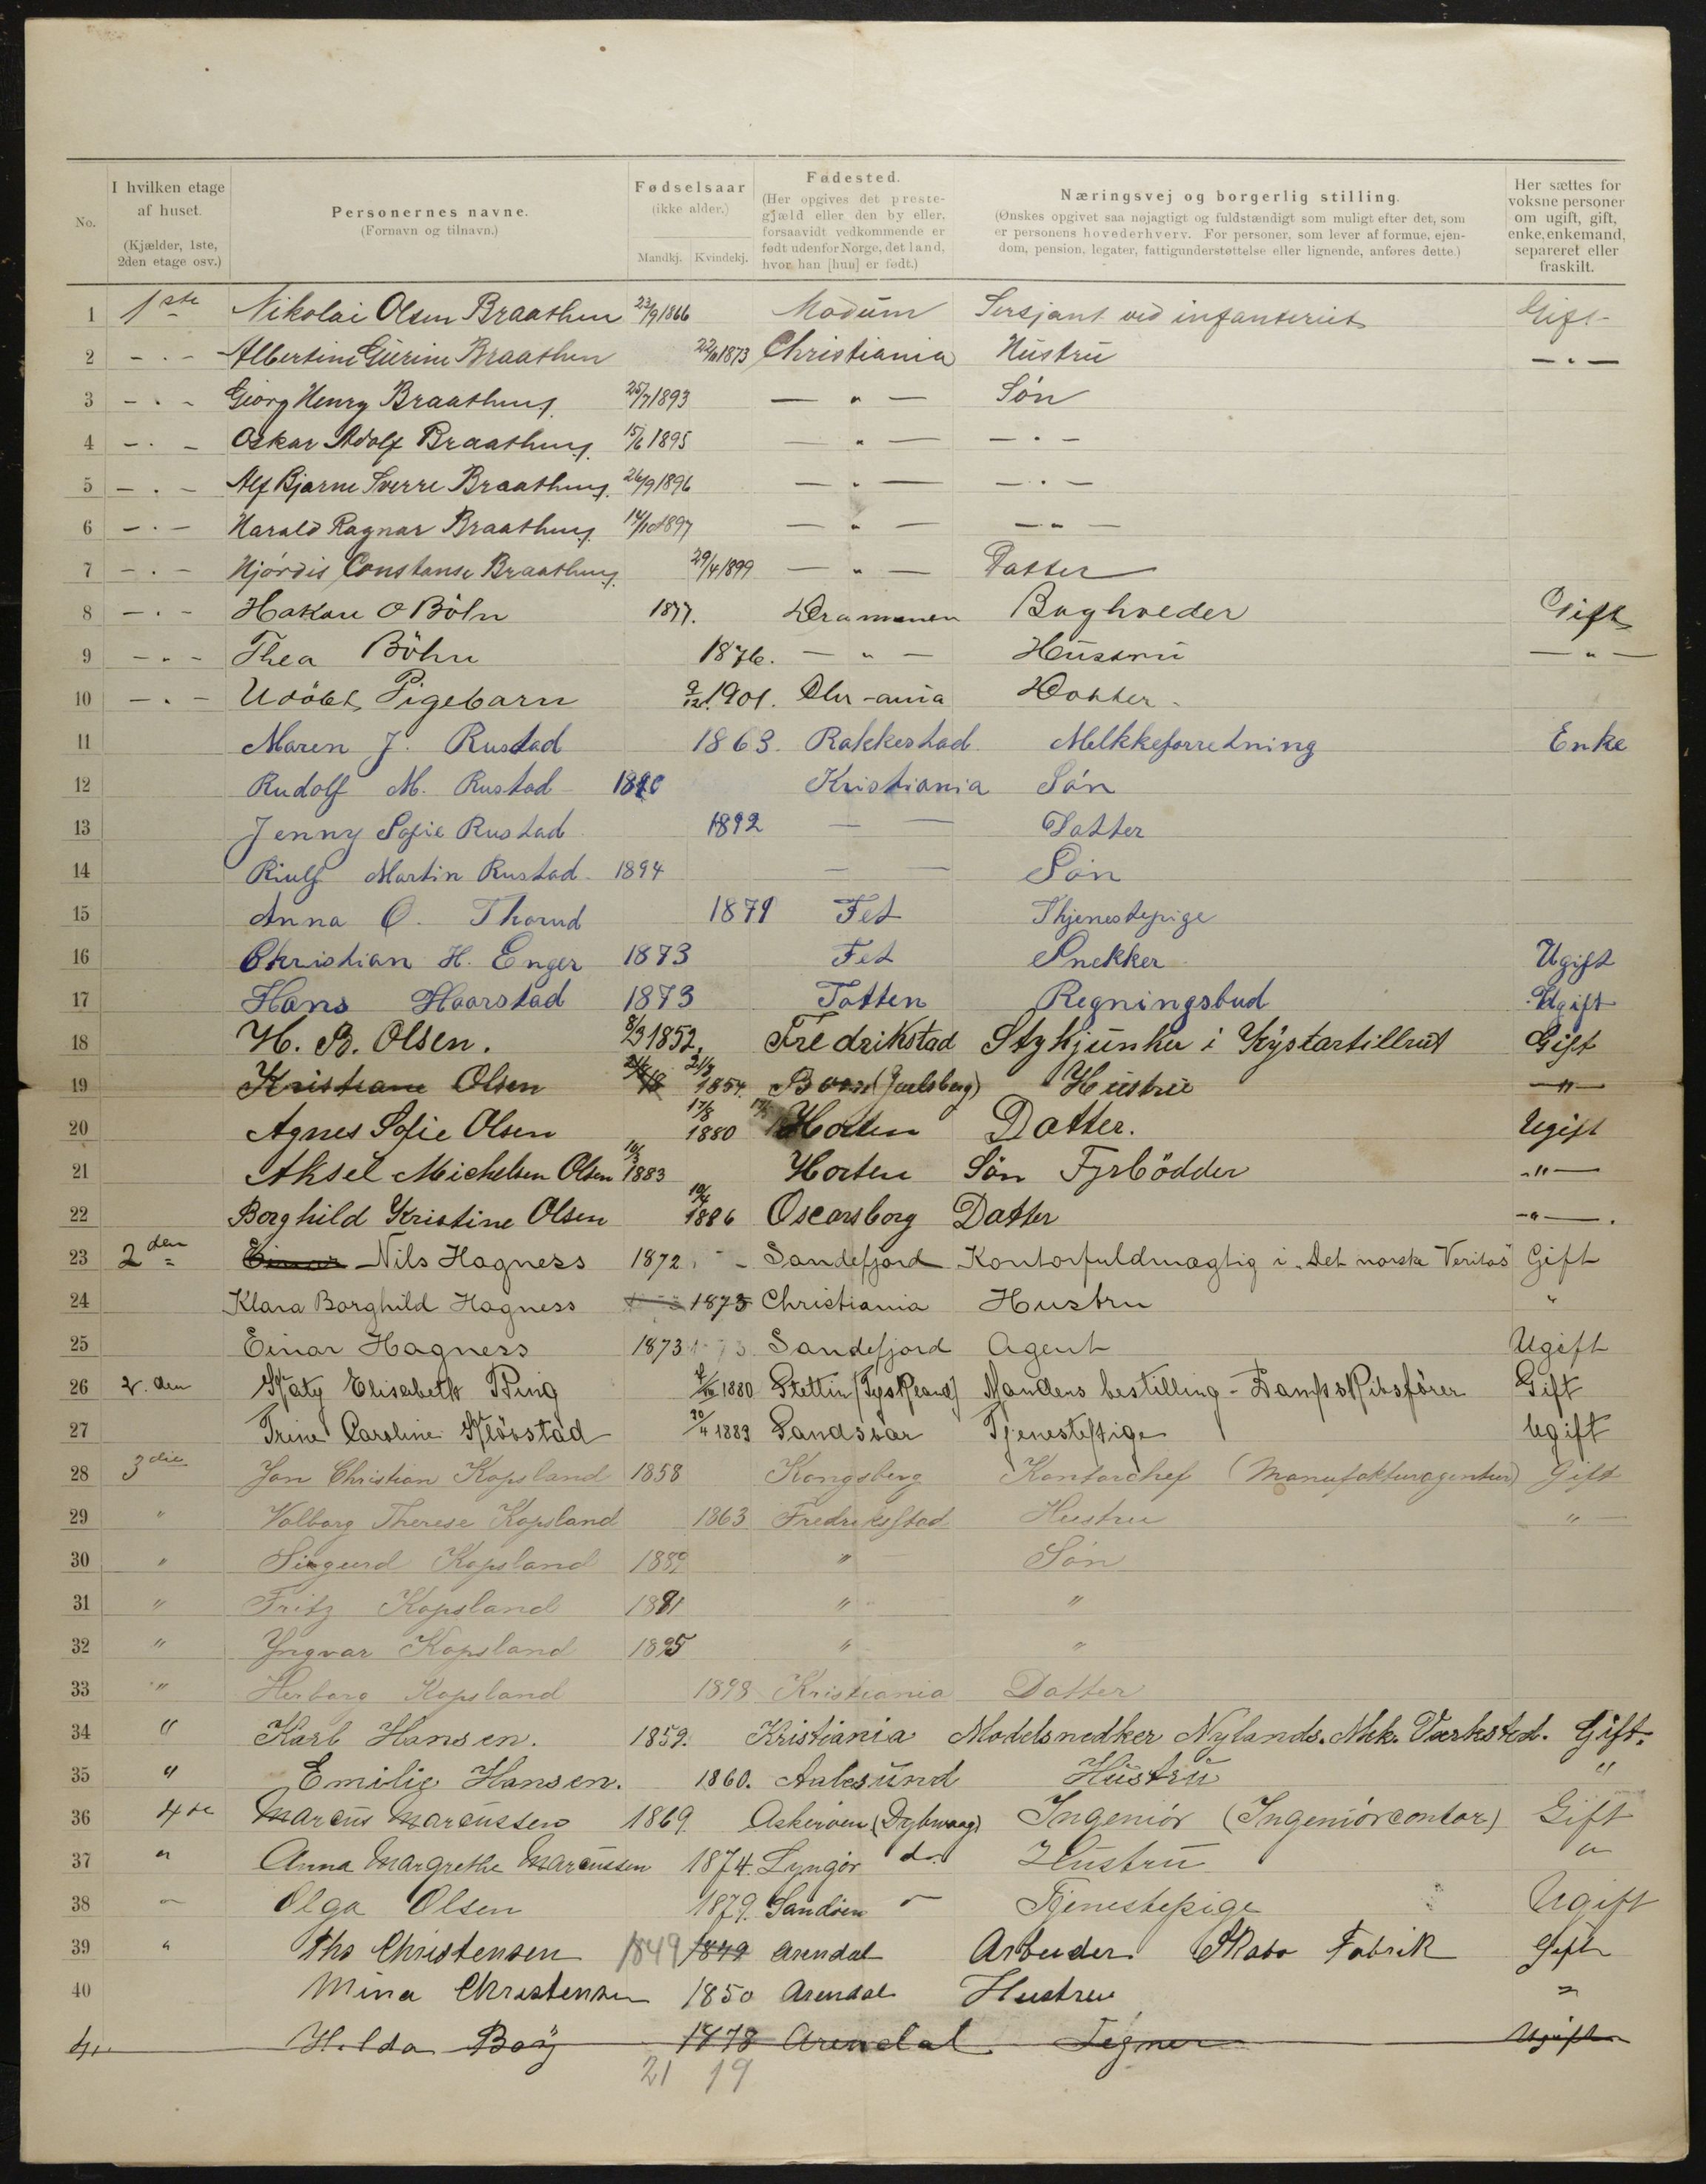 No. I hvilken etage af huset. (Kjælder, 1ste, 2den etage osv.) Personernes navne. (Fornavn og tilnavn.) Fødselsaar (ikke alder.) Mandkj. Kvindekj. Fødested. (Her opgives det prestegjæld eller den by eller, forsaavidt vedkommende er født udenfor Norge, det land, hvor han [hun] er født.) Næringsvej og borgerlig stilling. (Ønskes opgivet saa nøjagtigt og fuldstændigt som muligt efter det, som er personens hovederhverv. For personer, som lever af formue, ejendom, pension, legater, fattigunderstøttelse eller lignende, anføres dette.) Her sættes for voksne personer om ugift, gift, enke, enkemand, separeret eller fraskilt.
1 1ste Nikolai Olsen Braathen 23/9 1866 Modum Sersjant ved infanteriet Gift
2 - " - Albertine Gurine Braathen 22/11 1873 Christiania Hustru - " -
3 - " - Georg Henry Braathen 25/7 1893 - " - Søn
4 - " - Oskar Adolf Braathen 15/6 1895 - " - - " -
5 - " - Alf Bjarne Sverre Braathen 26/9 1896 - " - - " -
6 - " - Harald Ragnar Braathen 14/10 1897 - " - - " -
7 - " - Hjördis Constanse Braathen 29/4 1899 - " - Datter
8 - " - Hakon O Böhn 1877. Drammen Baghveder Gift
9 - " - Thea Böhn 1876. - " - Hustru - " -
10 - " - Udöbt Pigebarn 9/12 1901. Chr-ania Dotter
11 Maren J. Rustad 1863. Rakkestad Melkkeforretning Enke
12 Rudolf M. Rustad 1890 Kristiania Sön
13 Jenny Sofie Rustad 1892 — — Datter
14 Riulf Martin Rustad 1894 — — Sön
15 Anna O. Thorud 1879 Fet Thjenestepige
16 Christian H. Enger 1873 Fet Snekker Ugift
17 Hans Haarstad 1873 Totten Regningsbud Ugift
18 H. B. Olsen. 8/3 1852. Fredrikstad Stykjunker i Kystartilleriet Gift
19 Kristiane Olsen 21/3 1854. Borre (Jarlsberg) Hustru - " -
20 Agnes Sofie Olsen 17/8 1880 Horten Datter. Ugift
21 Aksel Michelsen Olsen 10/3 1883 Horten Sön Fyrbödder - " -
22 Borghild Kristine Olsen 10/4 1886 Oscarsborg Datter - " -
23 2den Einar Nils Hagness 1872. Sandefjord Kontorfuldmægtig i "Det norske Veritas" Gift
24 Klara Borghild Hagness 1873 Christiania Hustru "
25 Einar Hagness 1873 Sandefjord Agent Ugift
26 2. den Katy Elisabeth Bing 4/10 1880 Stettin (Tyskland) Mandens bestilling - Dampskibsfører Gift
27 Trine Caroline Klövstad 20/4 1883 Sandsvær Tjenestepige Ugift
28 3die Jon Christian Kopsland 1858 Kongsberg Kontorchef (Manufakturagentur) Gift
29 " Valborg Therese Kopsland 1863 Fredriksstad Hustru "
30 " Siegurd Kopsland 1889 " Sön
31 " Fritz Kopsland 1891 " "
32 " Yngvar Kopsland 1895 " "
33 " Herborg Kopsland 1898 Kristiania Datter
34 " Karl Hansen. 1859. Kristiania Modelsnedker Nylands. Mek. Værksted. Gift.
35 " Emilie Hansen. 1860. Aalesund Hustru "
36 4de Marcus Marcussen 1869 Askeröen (Dybvaag) Ingeniör (Ingeniörcontor) Gift
37 " Anna Margrethe Marcussen 1874. Lyngör do. Hustru "
38 " Olga Olsen 1879. Sandöen " Tjenestepige Ugift
39 " Ths Christensen 1849 1849 Arendal Arbeider Skabo Fabrik Gift
40 Mina Christensen 1850 Arendal Hustru "
41 Hilda Boÿ 1878 Arendal Tegner Ugift
21 19